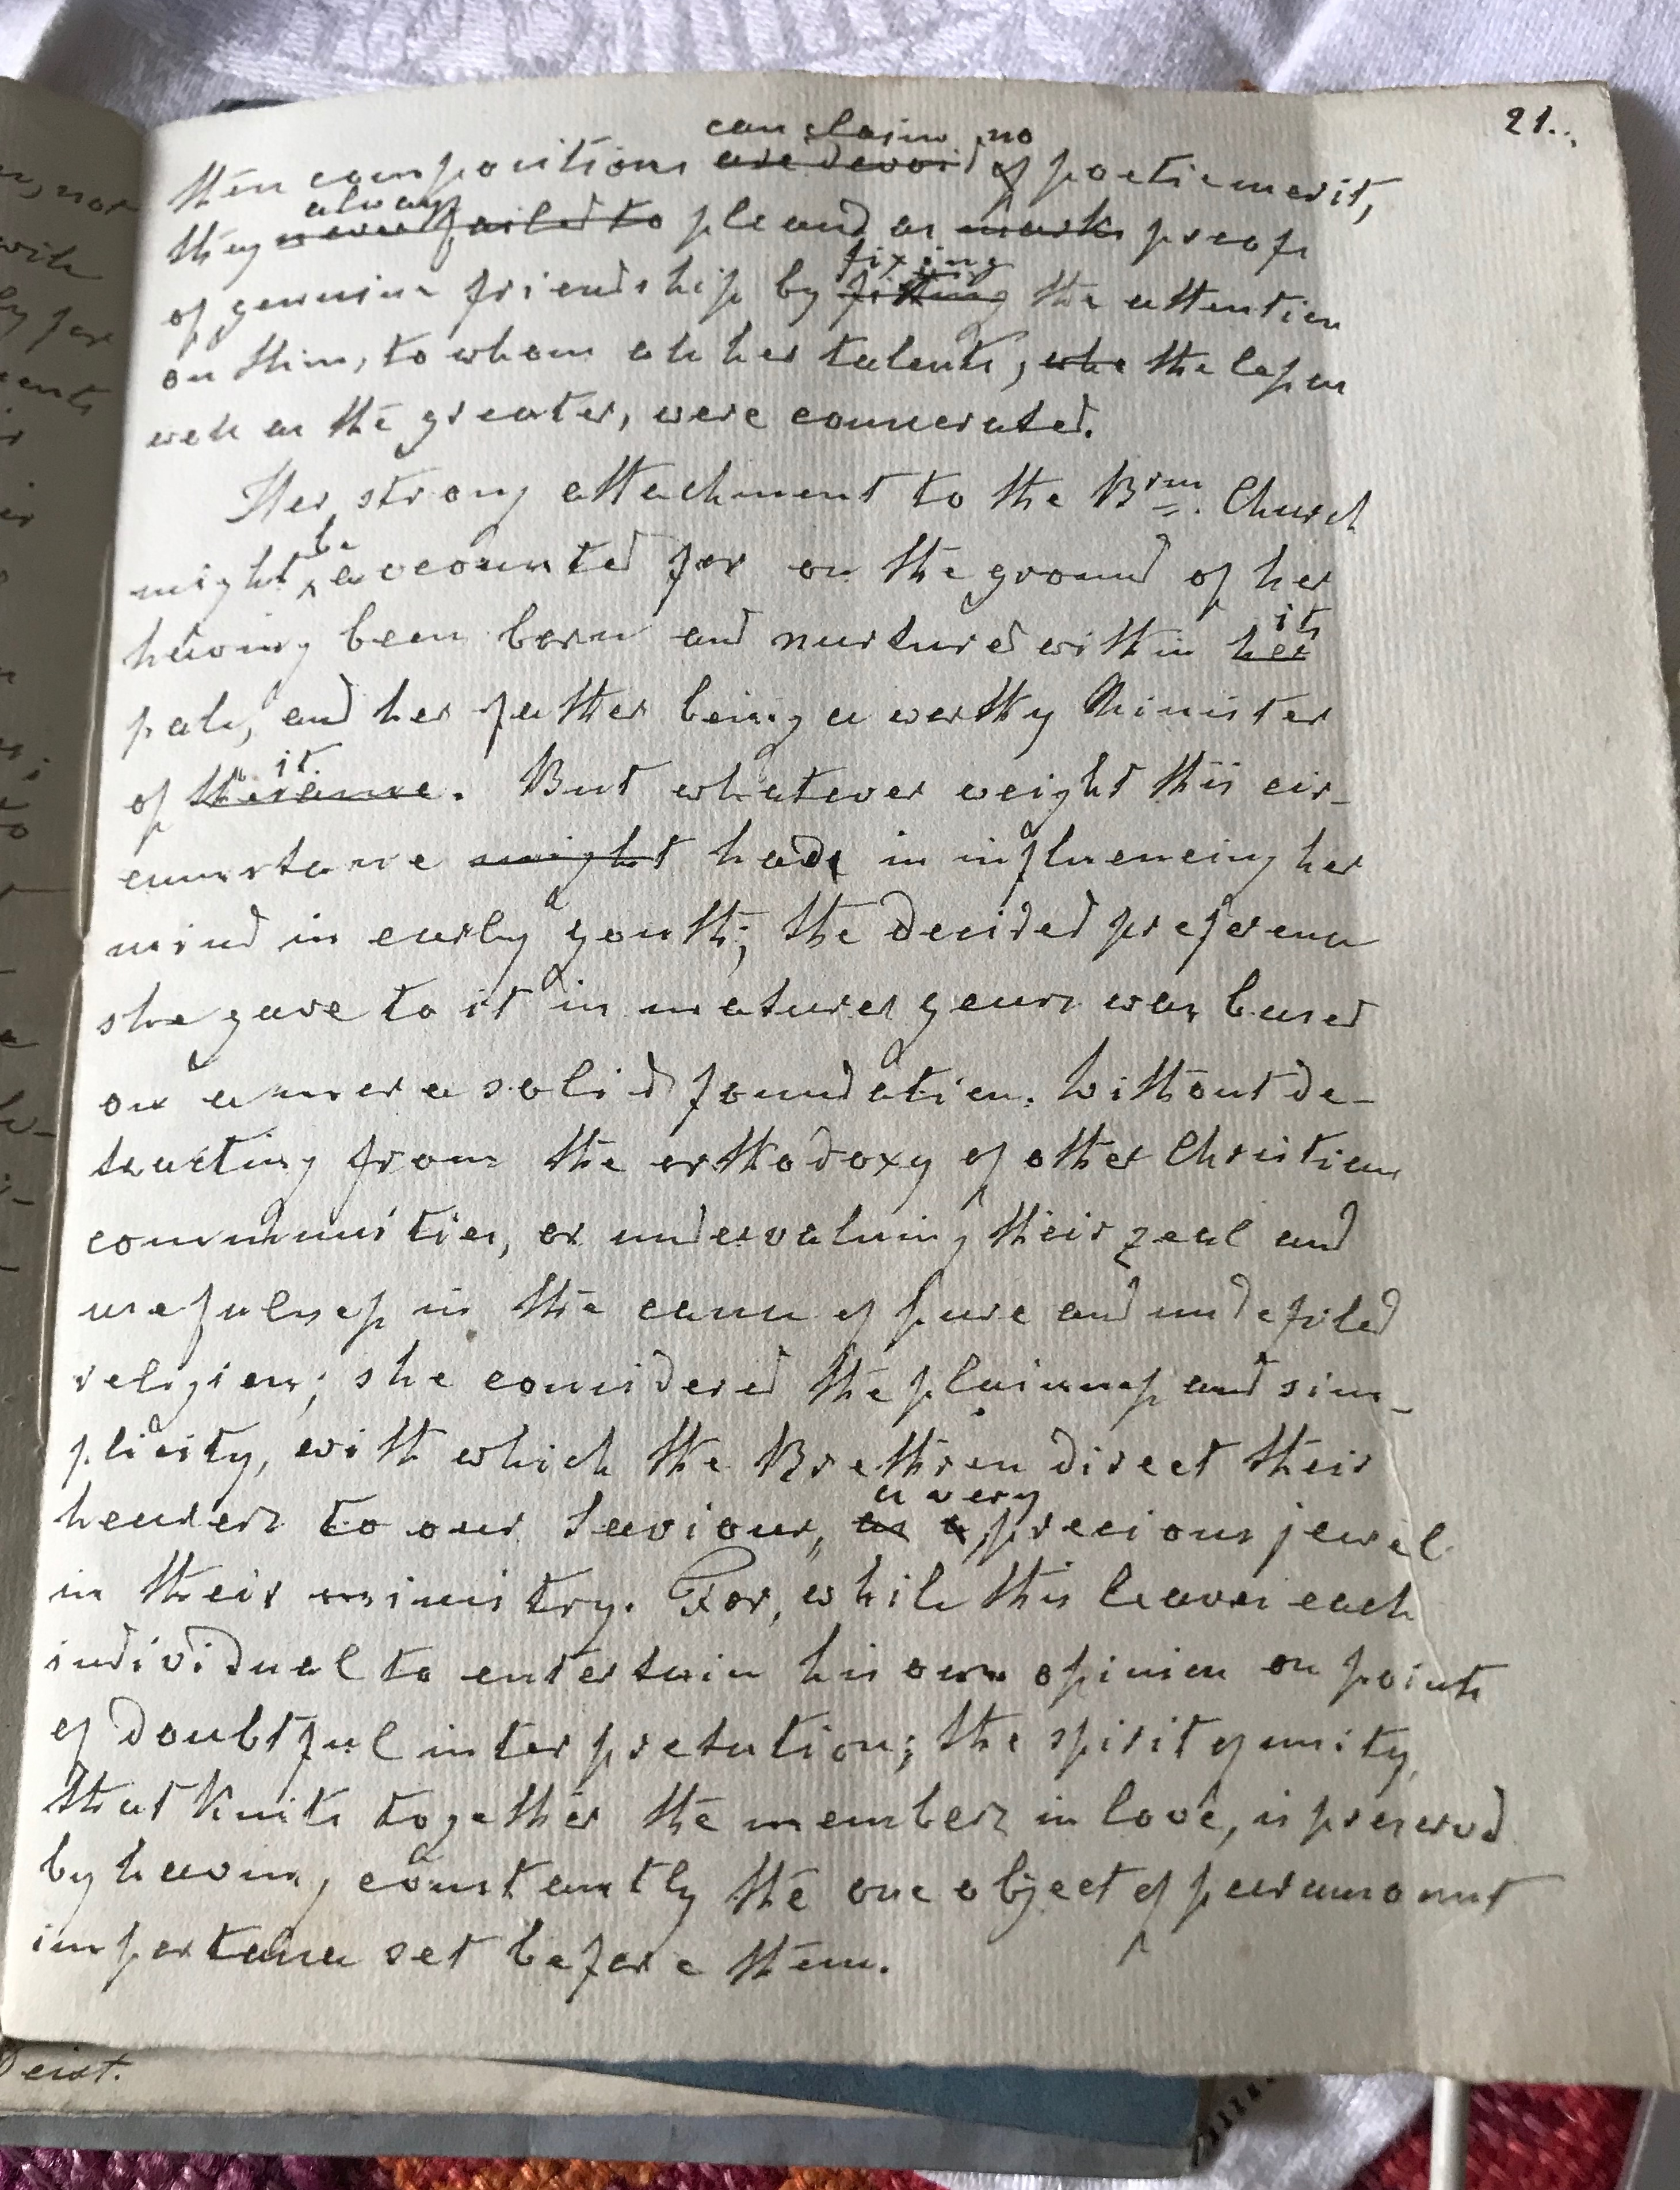 21.
can claim no
then compositions are devoid of poetic merit,
always
they never failed to please and as marks proofs
fixing
of genuine friendship by fixing the attention
on Him, to whom all her talents, who the less as
well as the greater, were consecrated.
Her strong attachment to the Brn. Church
be
might accounted for on the ground of her
its
having been born and nurtured within her
pale, and her father being a worthy Minister
it.
of the same. But whatever weight this cir-
cumstance might had in influencing her
mind in early youth; the decided preference
she gave to it in maturer years was based
on a more solid foundation. Without de-
tracting from the orthodoxy of other Christian
communities, or undervaluing their zeal and
usefulness in the cause of pure and undefiled
religion; she considered the plainness and sim-
plicity, with which the Brethren direct their
a very
hearers to our Saviour, as a precious jewel
in their ministry. For, while this leaves each
individual to entertain his own opinion on points
of doubtful interpretation; the spirit of unity,
that knits together the members in love, is preserved
by having constantly the one object of paramount
importance set before them.
Deist.